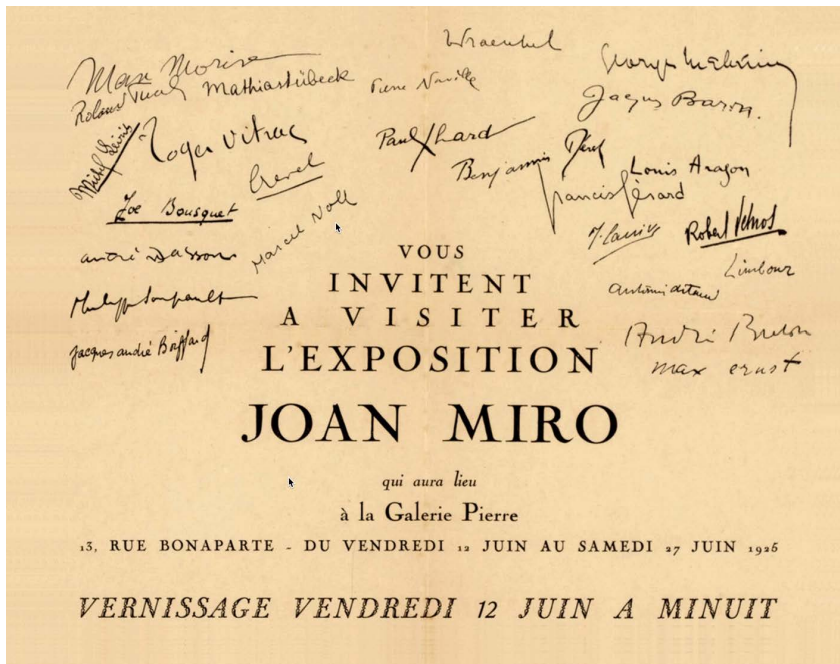 Max Morise
Roland Tual
Mathias Lübeck
Pierre Naville
Fraenkel
Georges Malkine
Jacques Baron.
Michel Leiris
Roger Vitrac
Paul Eluard
Benjamin Péret
Louis Aragon
Crevel
Francis Gérard
Joe Bousquet
Marcel Noll
J. Carrive
Robert Desnos
andré Masson
Limbour
Antonin Artaud
Philippe Soupault
Jacques andré Boiffard
André Breton
max ernst
VOUS
INVITENT
A VISITER
L'EXPOSITION
JOAN MIRO
qui aura lieu
à la Galerie Pierre
13, RUE BONAPARTE - DU VENDREDI 12 JUIN AU SAMEDI 27 JUIN 1925
VERNISSAGE VENDREDI 12 JUIN A MINUIT